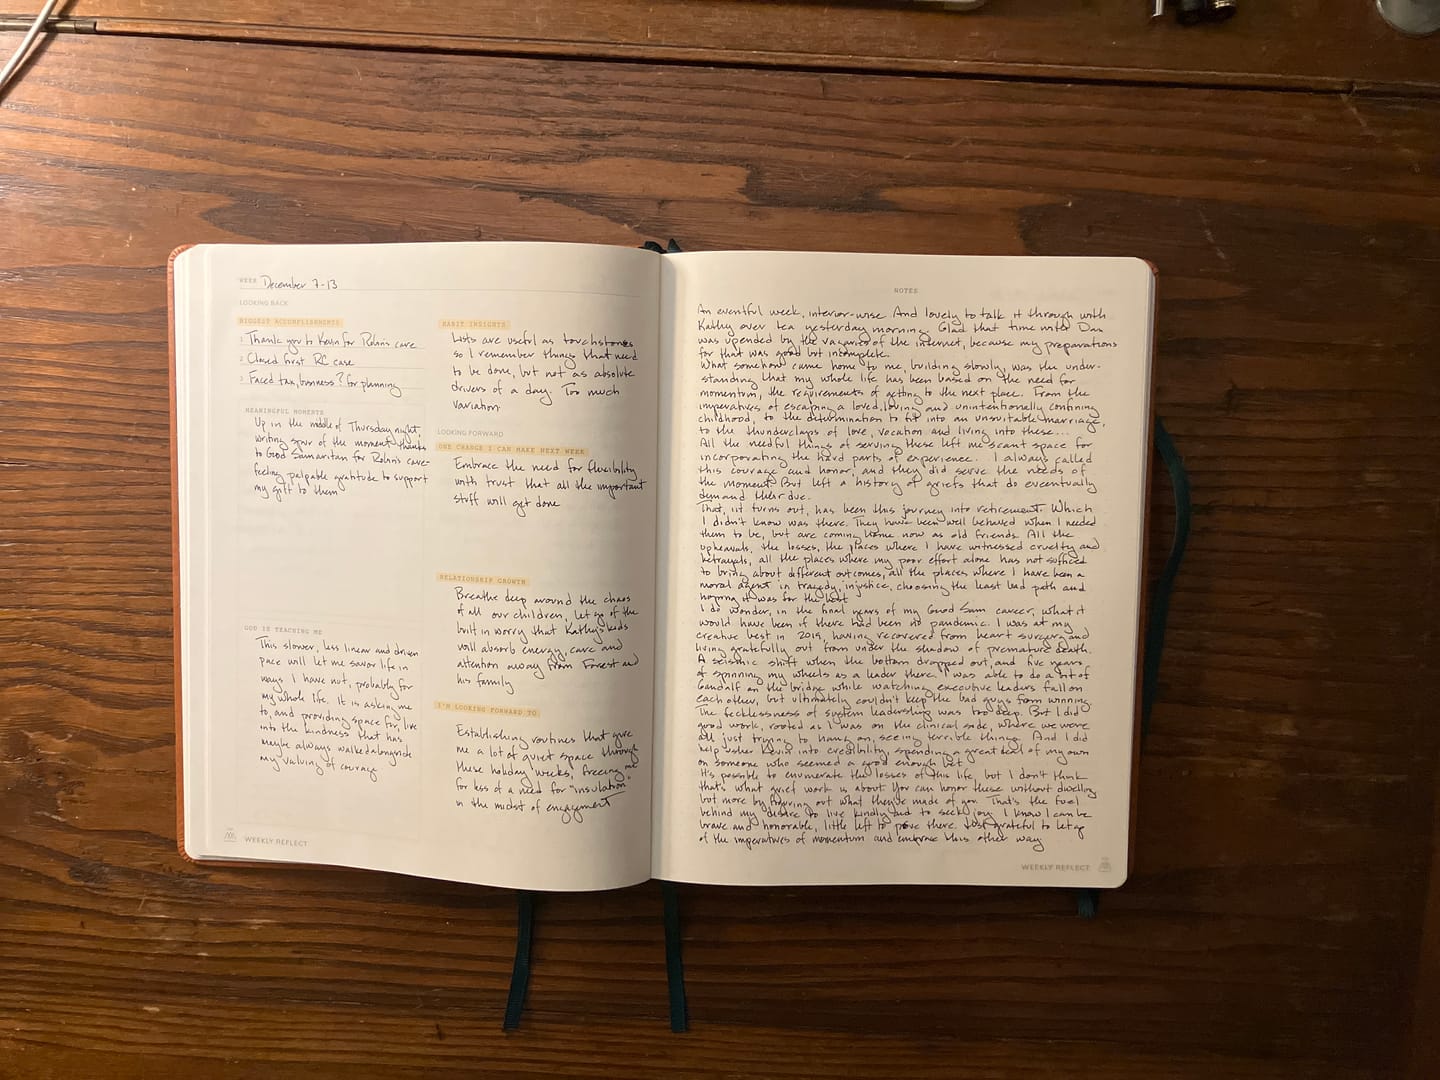 WEEK December 7-13
LOOKING BACK
BIGGEST ACCOMPLISHMENTS
1 Thank you to Kevin for Robin's care
2 Closed first RC case
3 Faced tax, business? for planning
MEANINGFUL MOMENTS
Up in the middle of Thursday night,
writing spur of the moment thanks
to Good Samaritan for Robin's care-
feeling palpable gratitude to support
my gift to them
GOD IS TEACHING ME
This slower, less linear and driven
pace will let me savor life in
ways I have not, probably for
my whole life. It is asking me
to, and providing space for, live
into the kindness that has
maybe always walked alongside
my valuing of courage
WEEKLY REFLECT
HABIT INSIGHTS
Lists are useful as touchstones
so I remember things that need
to be done, but not as absolute
drivers of a day. Too much
variation
LOOKING FORWARD
ONE CHANGE I CAN MAKE NEXT WEEK
Embrace the need for flexibility
with trust that all the important
stuff will get done
RELATIONSHIP GROWTH
Breathe deep around the chaos
of all our children, let go of the
built in worry that Kathy's kids
will absorb energy, care and
attention away from Forest and
his family
I'M LOOKING FORWARD TO
Establishing routines that give
me a lot of quiet space through
these holiday weeks, freeing me
for less of a need for "insulation"
in the midst of engagement
NOTES
An eventful week, interior-wise. And lovely to talk it through with
Kathy over tea yesterday morning. Glad that time with Dan
was upended by the vagaries of the internet, because my preparations
for that was good but incomplete.
What somehow came home to me, building slowly, was the under-
standing that my whole life has been based on the need for
momentum, the requirements of getting to the next place. From the
imperatives of escaping a loved, loving and unintentionally confining
childhood, to the determination to fit into an unsuitable marriage,
to the thunderclaps of love, vocation and living into these...
All the needful things of serving these left me scant space for
incorporating the hard parts of experience. I always called
this courage and honor, and they did serve the needs of
the moment. But left a history of griefs that do eventually
demand their due.
That, it turns out, has been this journey into retirement. Which
I didn't know was there. They have been well behaved when I needed
them to be, but are coming home now as old friends. All the
upheavals, the losses, the places where I have witnessed cruelty and
betrayals, all the places where my poor effort alone has not sufficed
to bring about different outcomes, all the places where I have been a
moral agent in tragedy, injustice, choosing the least bad path and
hoping it was for the best
I do wonder, in the final years of my Good Sam career, what it
would have been if there had been no pandemic. I was at my
creative best in 2019, having recovered from heart surgery and
living gratefully out from under the shadow of premature death.
A seismic shift when the bottom dropped out, and five years
of spinning my wheels as a leader there. I was able to do a bit of
Gandalf on the bridge while watching executive leaders fall on
each other, but ultimately couldn't keep the bad guys from winning.
The fecklessness of system leadership was too deep. But I did
good work, rooted as I was on the clinical side, where we were
all just trying to hang on, seeing terrible things. And I did
help usher Kevin into credibility, spending a great deal of my own
on someone who seemed a good enough bet.
It's possible to enumerate the losses of this life, but I don't think
that's what grief work is about. You can honor these without dwelling
but more by figuring out what they've made of you. That's the fuel
behind my desire to live kindly and to seek joy. I know I can be
brave and honorable, little left to prove there. Just grateful to let go
of the imperatives of momentum and embrace this other way
WEEKLY REFLECT